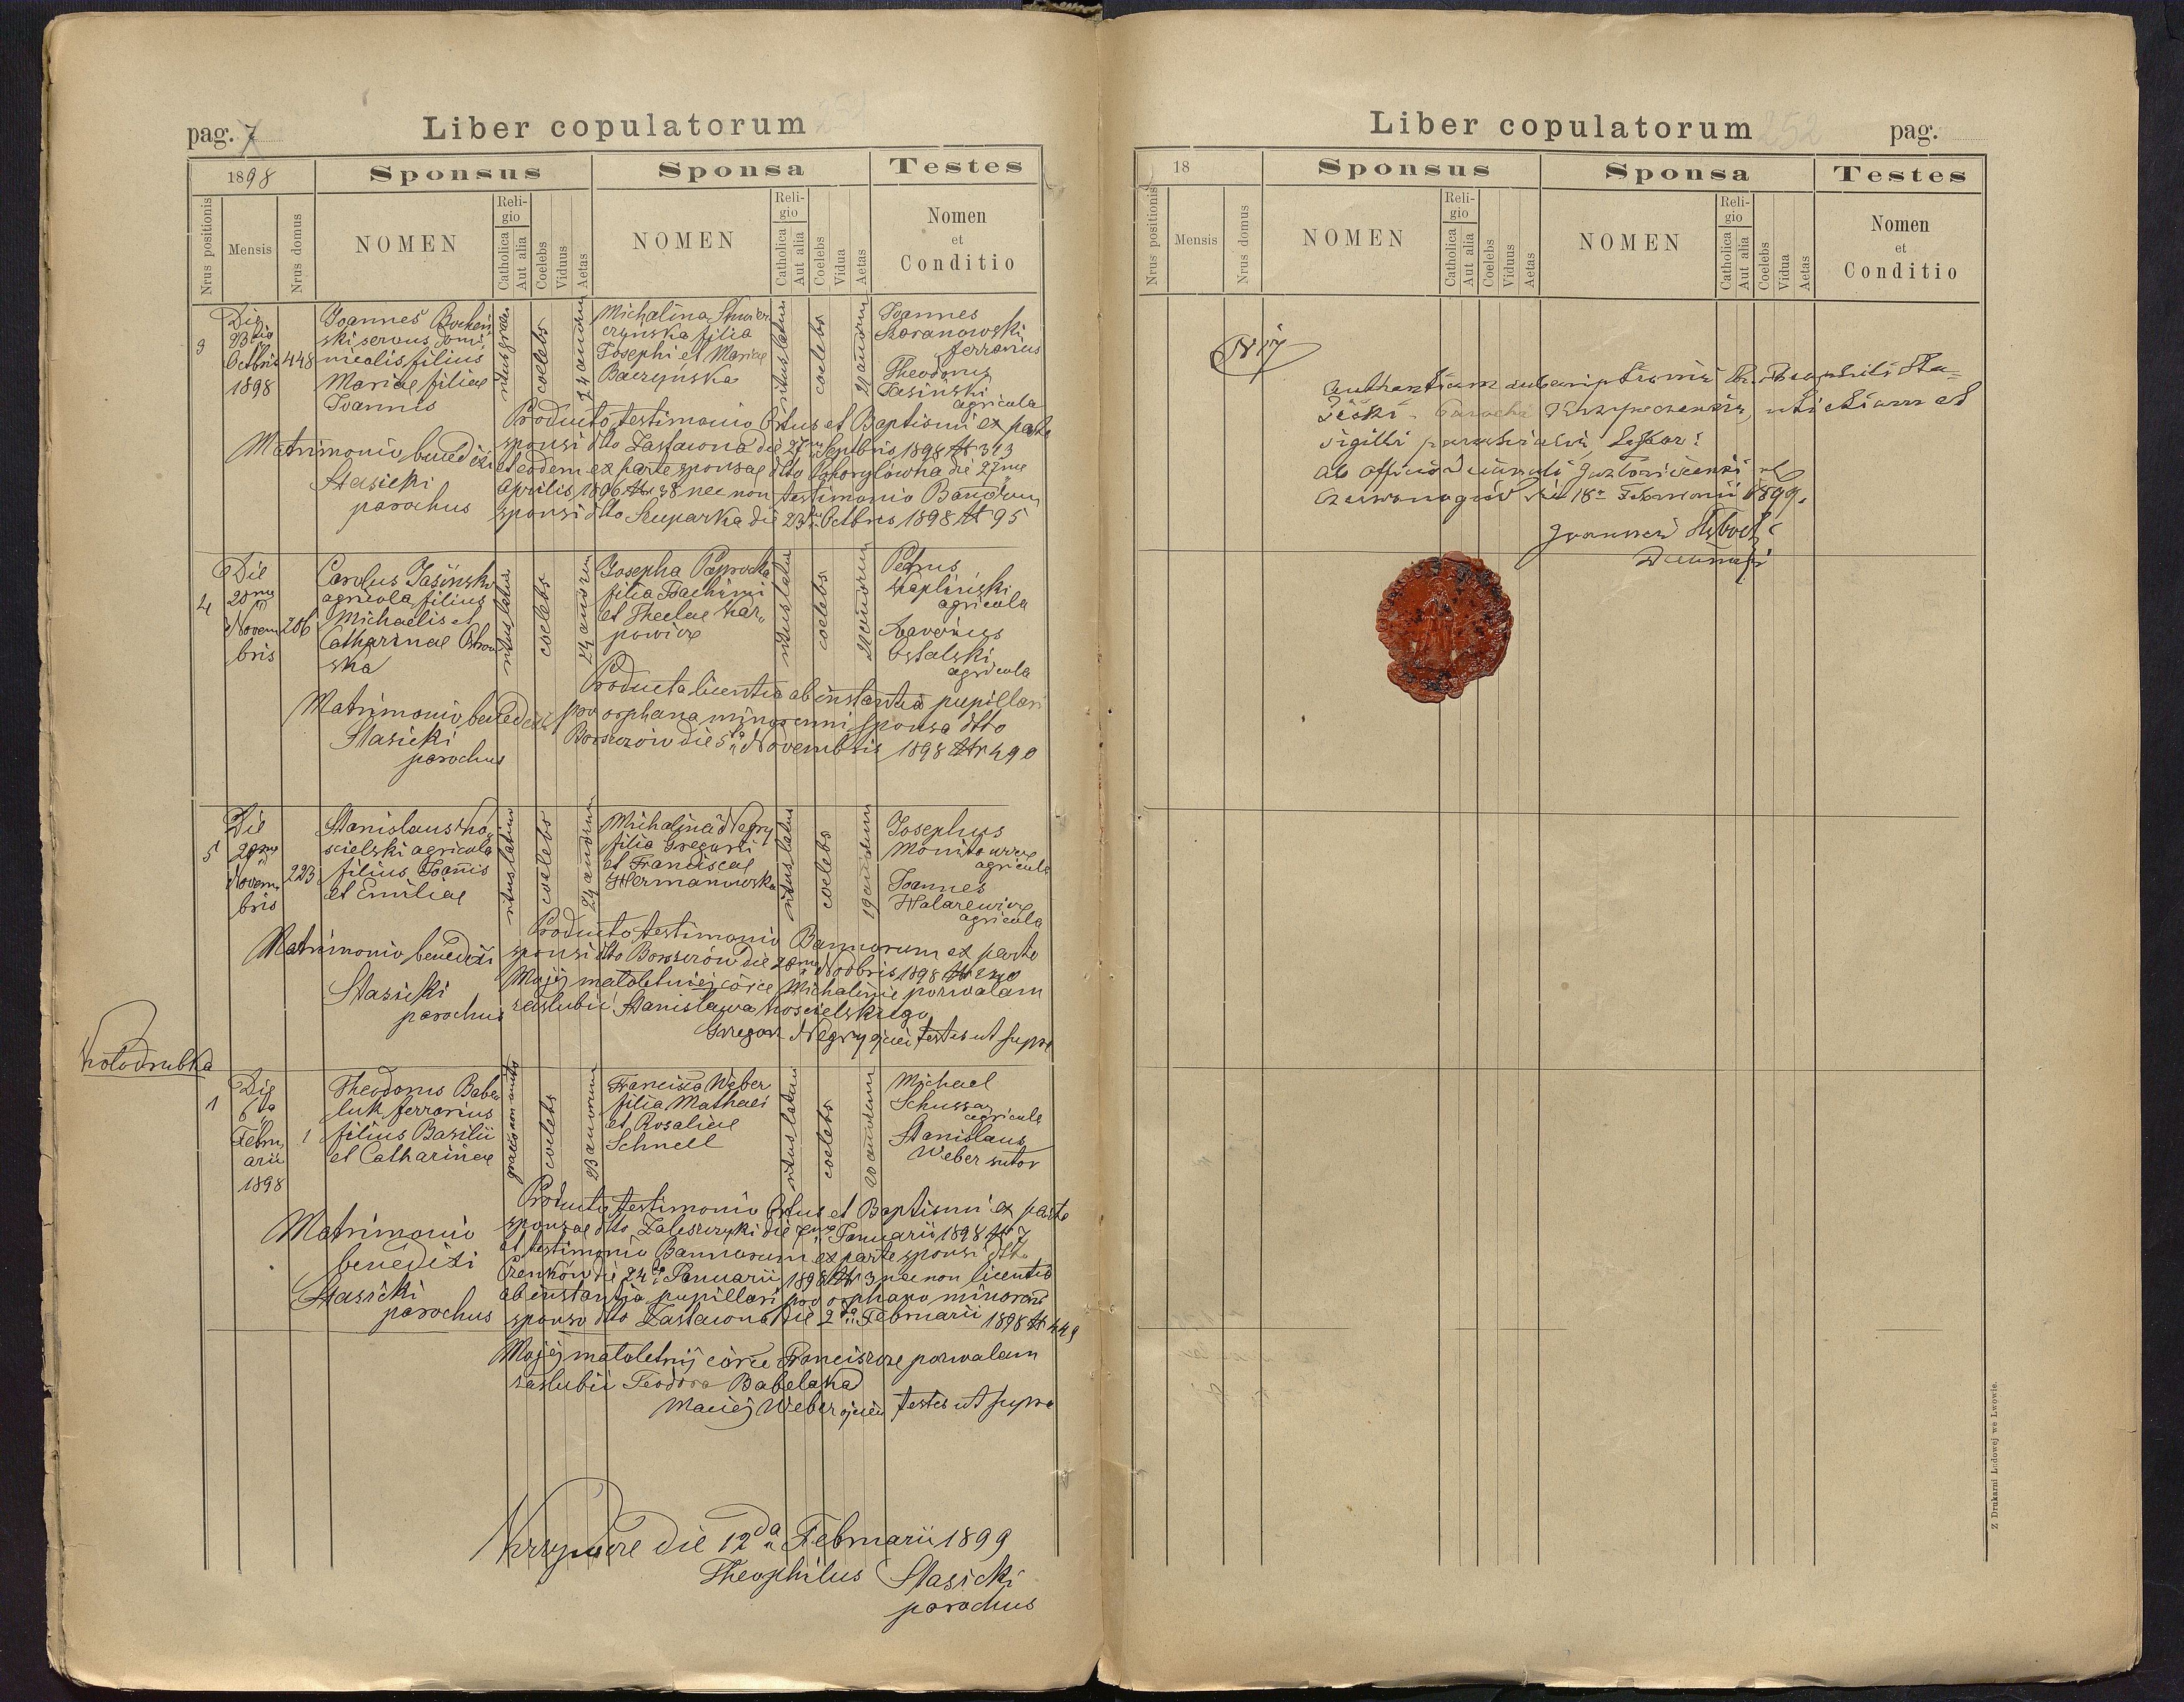 pag. 7
Liber copulatorum
1898
Sponsus
Sponsa
Testes
Nrus positionis
Mensis
Nrus domus
NOMEN
Religio
Catholica
Aut alia
Coelebs
Viduus
Aetas
NOMEN
Religio
Catholica
Aut alia
Coelebs
Vidua
Aetas
Nomen
et
Conditio
3
Die
23tia
Octbris
1898
448
Joannes
ski servus domi
nicalis filius
Mariae filiae
Joannis
coelebs
24 annorum
Michalina
czyńska filia
Josephi et Mariae
Baczyńska
ritus latini
coelebs
22 annorum
Joannes
Baranowski
ferrarius
Theodorus
Jasiński
agricola
Producto testimonio Ortus et Baptismi ex parte
sponsi dtto Zastawna die 27ma Septbris 1898 Nr 313
et eodem ex parte sponsae dtto die 27ma
Aprilis 1896 Nr 38 nec non testimonio Bannorum
sponsi dtto Szuparka die 23tia Octbris 1898 Nr 95
Matrimonio benedixi
Stasicki
parochus
4
Die
20ma
Novem
bris
206
Carolus Jasiński
agricola filius
Michaelis et
Catharinae Ostrow
ska
ritus latini
coelebs
24 annorum
Josepha Paprocka
filia Joachimi
et Theclae Kar„
powicz
ritus latini
coelebs
22 annorum
Petrus
Kapliński
agricola
Xaverius
Ostalski
agricola
Producta licentia ab instantia pupillari
pro orphana minorenni sponsa dtto
Borszczów die 5ta Novembris 1898 Nr 490
Matrimonio benedixi
Stasicki
parochus
5
Die
20ma
Novem
bris
223
Stanislaus Ko„
scielski agricola
filius Joannis
et Emiliae
ritus latini
coelebs
24 annorum
Michalina Negry
filia Gregorii
et Franciscae
Hermanowska
ritus latini
coelebs
19 annorum
Josephus
Monitowicz
agricola
Joannes
Halarewicz
agricola
Producto testimonio Bannorum ex parte
sponsi dtto Borszczów die 20ma Novbris 1898 Nr
Mojej małoletniej córce Michalinie pozwalam
zaślubić Stanisława Kościelskiego
Grzegorz Negry ojciec testes ut supra
Matrimonio benedixi
Stasicki
parochus
Kołodrubka
1
Die
6ta
Febru
arii
1898
1
Theodorus Babe
luk ferrarius
filius Basilii
et Catharinae
coelebs
23 annorum
Francisca Weber
filia Mathaei
et Rosaliae
Schnell
ritus latini
coelebs
20 annorum
Michael
Schussar
agricola
Stanislaus
Weber sutor
Producto testimonio Ortus et Baptismi ex parte
sponsae dtto Zaleszczyki die 7ma Januarii 1898 Nr 7
et testimonio Bannorum ex parte sponsi dtto
Czenków die 24ta Januarii 1898 Nr 3 nec non licentia
ab instantia pupillari pro orphano minoreni
sponso dtto Zastawna die 2da Februarii 1898 Nr 449
Matrimonio
benedixi
Stasicki
parochus
Mojej małoletnij córce Franciszce pozwalam
zaślubić Teodora Babelaka
Maciej Weber ojciec testes ut supra
Krzywcze die 12da Februarii 1899
Theophilus Stasicki
parochus
Liber copulatorum
252
pag.
18
Sponsus
Sponsa
Testes
Nrus positionis
Mensis
Nrus domus
NOMEN
Religio
Catholica
Aut alia
Coelebs
Viduus
Aetas
NOMEN
Religio
Catholica
Aut alia
Coelebs
Vidua
Aetas
Nomen
et
Conditio
N 17
subscriptionis Theophili Sta=
sicki Parochi Krzywczensis, uti etiam et
sigilli parochialis
Ab Officio Decanali
die 18a Februarii 1899.
Joannes
Decanus
Z Drukarni Ludowej we Lwowie.